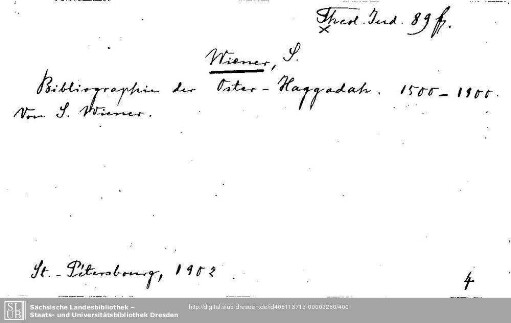 Theol. Jud. 89 f.
Wiener, S.
Bibliographie der Oster-Haggadah. 1500-1900.
Von S. Wiener.
St.-Pétersbourg, 1902
4
Sächsische Landesbibliothek –
Staats- und Universitätsbibliothek Dresden